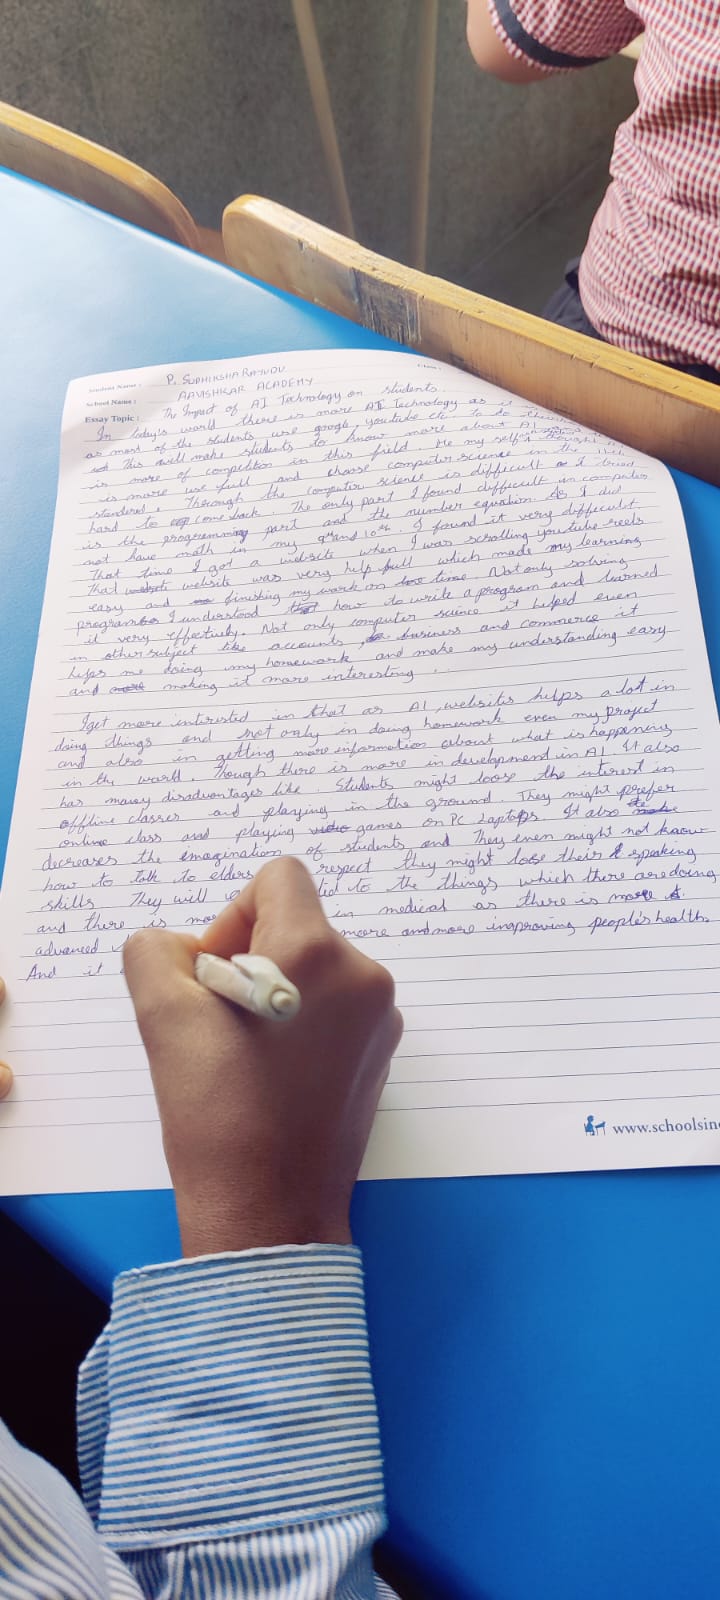 Student Name : P. SUDHIKSHA RAYUDU
School Name : AAVISHKAR ACADEMY
Essay Topic : The Impact of AI Technology on students.
In today's world there is more AI Technology as it
as most of the students use google, youtube etc to do
This will make students to know more about AI
is more of competition in this field. Me my self
is more use full and chose computer science in the
standered. Thorough the computer science is difficult as I tried
hard to come back. The only part I found difficult in computer
is the programing part and the number equation. As I did
not have math in my 9th and 10th. I found it very difficult
That time I got a website when I was scrolling youtube reels
That website was very help full which made my learning
easy and finishing my work on time. Not only solving
programs I understood how to write a program and learned
it very effectively. Not only computer science it helped even
in other subject like accounts, business and commerce it
helps me doing my homework and make my understanding easy
and making it more interesting.
I get more interested in that as AI, websites helps a lot in
doing things and not only in doing homework even my project
and also in getting more information about what is happening
in the world. Though there is more in development in AI. It also
has many disadvantages like. Students might loose the interest in
offline classes and playing in the ground. They might prefer
online class and playing video games on PC Laptops. It also
decreases the imagination of students and They even might not know
how to talk to elders respect they might lose their speaking
skills. They will to the things which there are doing
and there is in medical as there is more
advanced more and more improving people's health.
And it
www.schoolsin